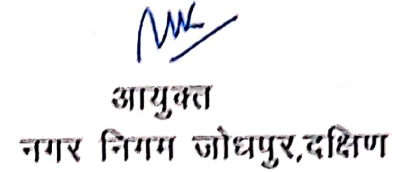 आयुक्त
नगर निगम जोधपुर,दक्षिण